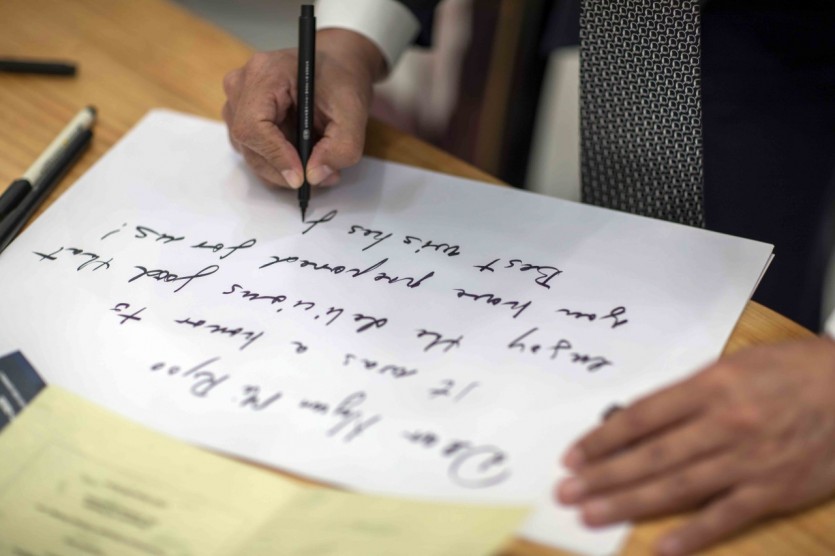 Dear Hyun Mi Ryoo
It was a honor to
enjoy the delicious food that
you have prepared for us!
Best wishes f